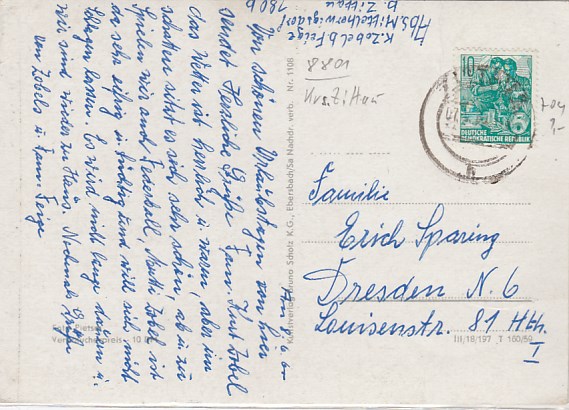 Abs. Mittelherwigsdorf
K. Zobel b Feige
b. Zittau
180 b
8801
Krs. Zittau
10
DEUTSCHE
DEMOKRATISCHE REPUBLIK
Familie
Erich Sparing
Dresden N. 6
Louisenstr. 81 Hth.
I
III/18/197 T 160/59
Kunstverlag Bruno Scholz K.G., Ebersbach/Sa Nachdr. verb. Nr. 1108
Foto Pietsch
Verbraucherpreis - 10
Von schönen Urlaubstagen von hier
sendet Herzliche Grüße Fam. Knut Zobel
das Wetter ist herrlich u. warm, aber im
schatten sitzt es sich sehr schön, ab u. zu
spielen wir auch Federball, Mutti Zobel ist
da sehr eifrig u. tüchtig und will sich nicht
schlagen lassen. Es wird nicht lange dauern u.
wir sind wieder zu Haus. Nochmals Grüße
von Zobels u. Fam. Feige